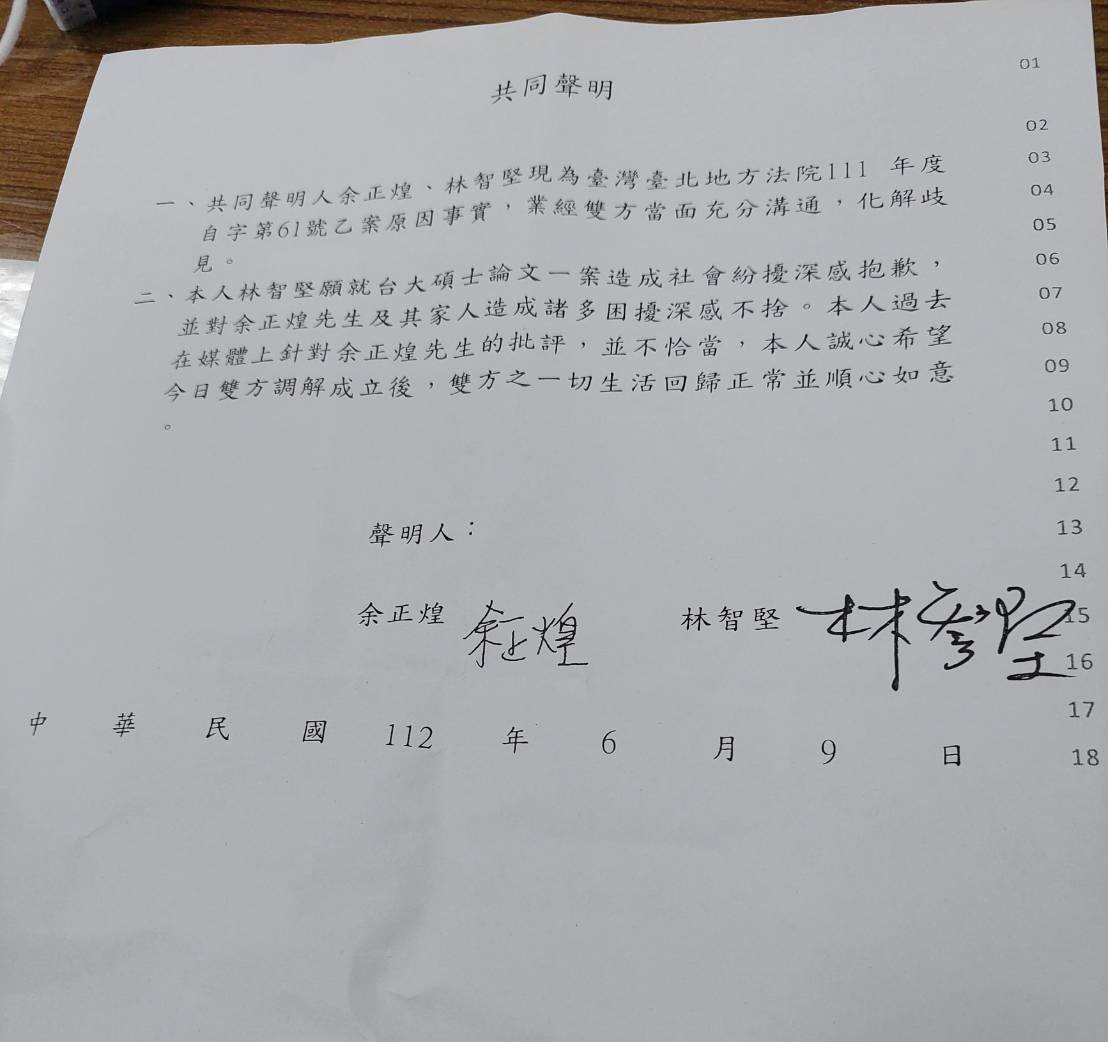 共同聲明 01
02
一、共同聲明人余正煌、林智堅現為臺灣臺北地方法院111 年度 03
自字第61號乙案原因事實，業經雙方當面充分溝通，化解歧 04
見。 05
二、本人林智堅願就台大碩士論文一案造成社會紛擾深感抱歉， 06
並對余正煌先生及其家人造成諸多困擾深感不捨。本人過去 07
在媒體上針對余正煌先生的批評，並不恰當，本人誠心希望 08
今日雙方調解成立後，雙方之一切生活回歸正常並順心如意 09
。 10
11
12
聲明人： 13
14
余正煌 余正煌 林智堅 林智堅 15
16
17
中 華 民 國 112 年 6 月 9 日 18